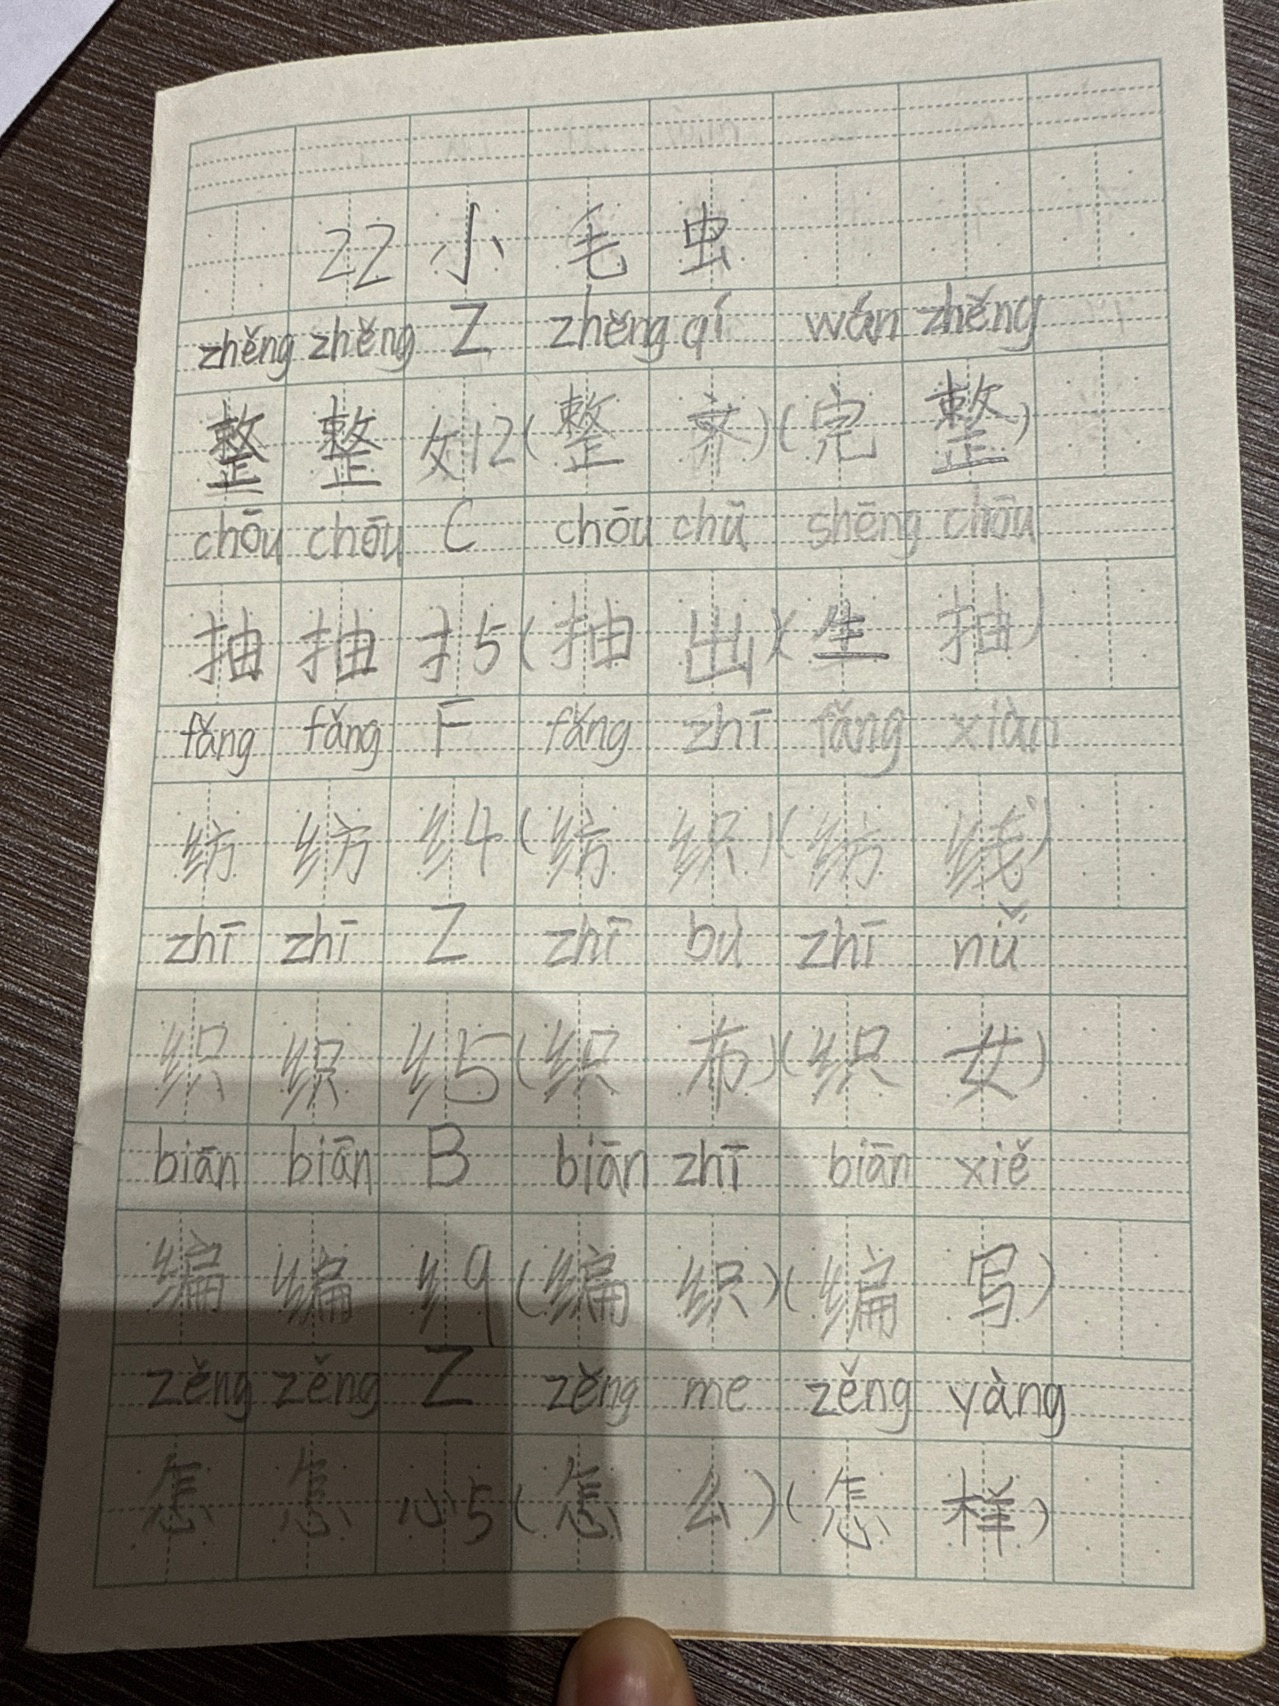 22 小毛虫
zhěng zhěng Z zhěng qí wán zhěng
整 整 攵12(整 齐)(完 整)
chōu chōu C chōu chū shēng chōu
抽 抽 扌5(抽 出)(生 抽)
fǎng fǎng F fǎng zhī fǎng xiàn
纺 纺 纟4(纺 织)(纺 线)
zhī zhī Z zhī bù zhī nǚ
织 织 纟5(织 布)(织 女)
biān biān B biān zhī biān xiě
编 编 纟9(编 织)(编 写)
zěng zěng Z zěng me zěng yàng
怎 怎 心5(怎 么)(怎 样)